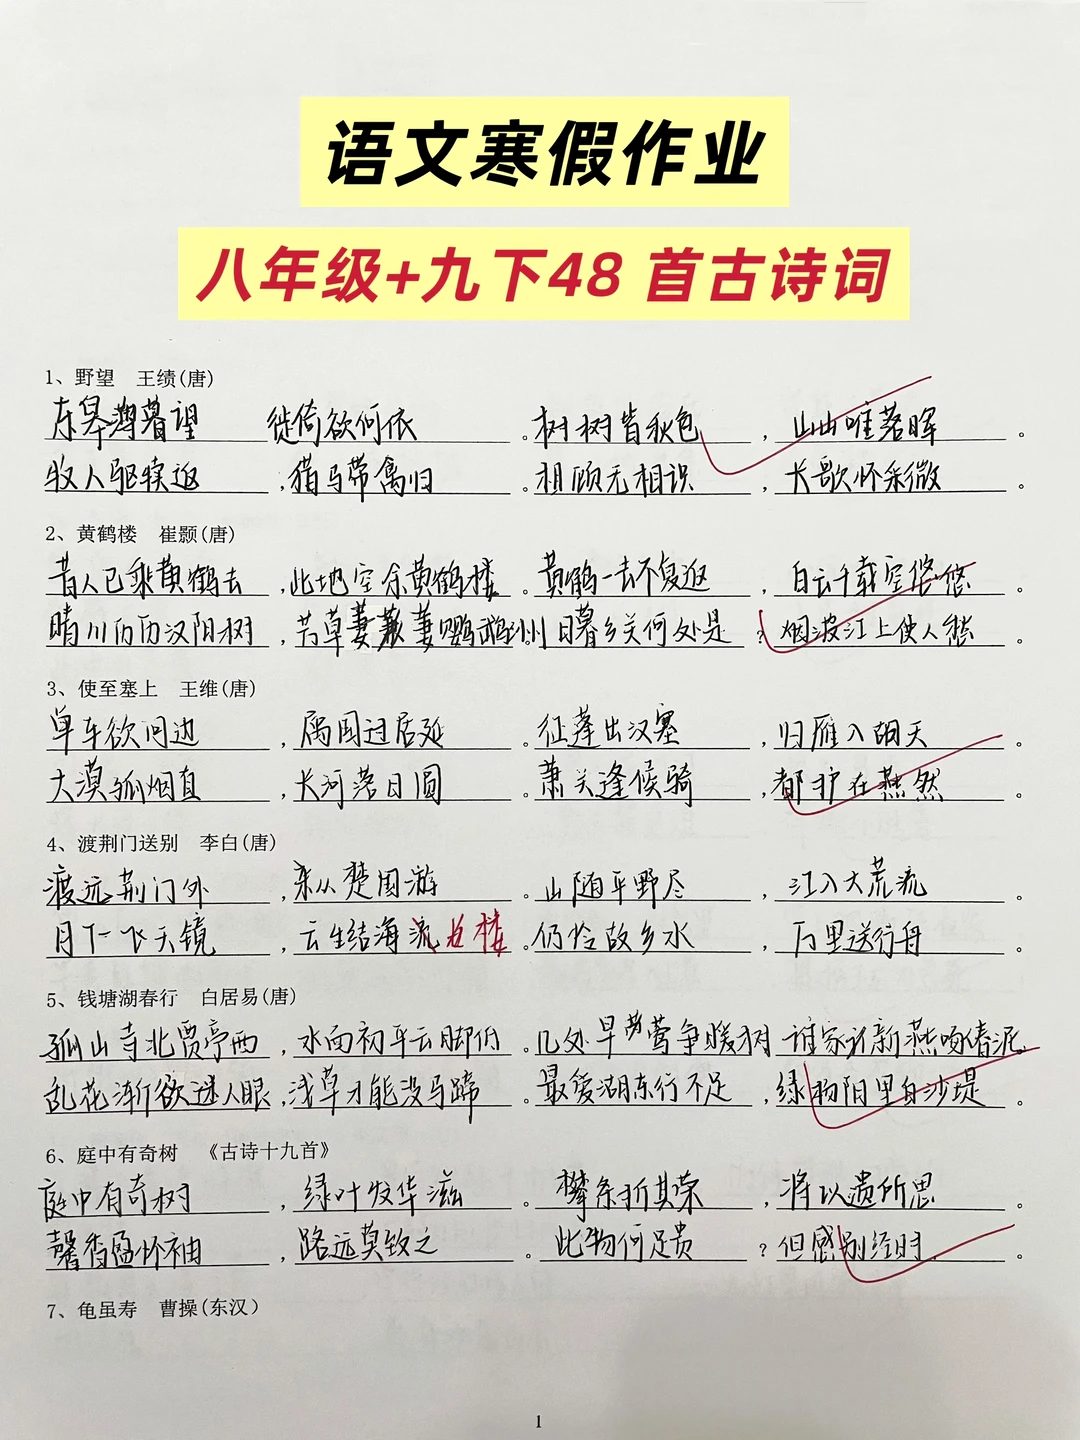 语文寒假作业
八年级+九下48 首古诗词
1、野望 王绩(唐)
东皋薄暮望 徙倚欲何依。树树皆秋色，山山唯落晖。
牧人驱犊返，猎马带禽归。相顾无相识，长歌怀采薇。
2、黄鹤楼 崔颢(唐)
昔人已乘黄鹤去，此地空余黄鹤楼。黄鹤一去不复返，白云千载空悠悠。
晴川历历汉阳树，芳草萋萋鹦鹉洲。日暮乡关何处是？烟波江上使人愁。
3、使至塞上 王维(唐)
单车欲问边，属国过居延。征蓬出汉塞，归雁入胡天。
大漠孤烟直，长河落日圆。萧关逢候骑，都护在燕然。
4、渡荆门送别 李白(唐)
渡远荆门外，来从楚国游。山随平野尽，江入大荒流。
月下飞天镜，云生结海流楼。仍怜故乡水，万里送行舟。
5、钱塘湖春行 白居易(唐)
孤山寺北贾亭西，水面初平云脚低。几处早莺争暖树，谁家新燕啄春泥。
乱花渐欲迷人眼，浅草才能没马蹄。最爱湖东行不足，绿杨阴里白沙堤。
6、庭中有奇树 《古诗十九首》
庭中有奇树，绿叶发华滋。攀条折其荣，将以遗所思。
馨香盈怀袖，路远莫致之。此物何足贵？但感别经时。
7、龟虽寿 曹操(东汉)
1